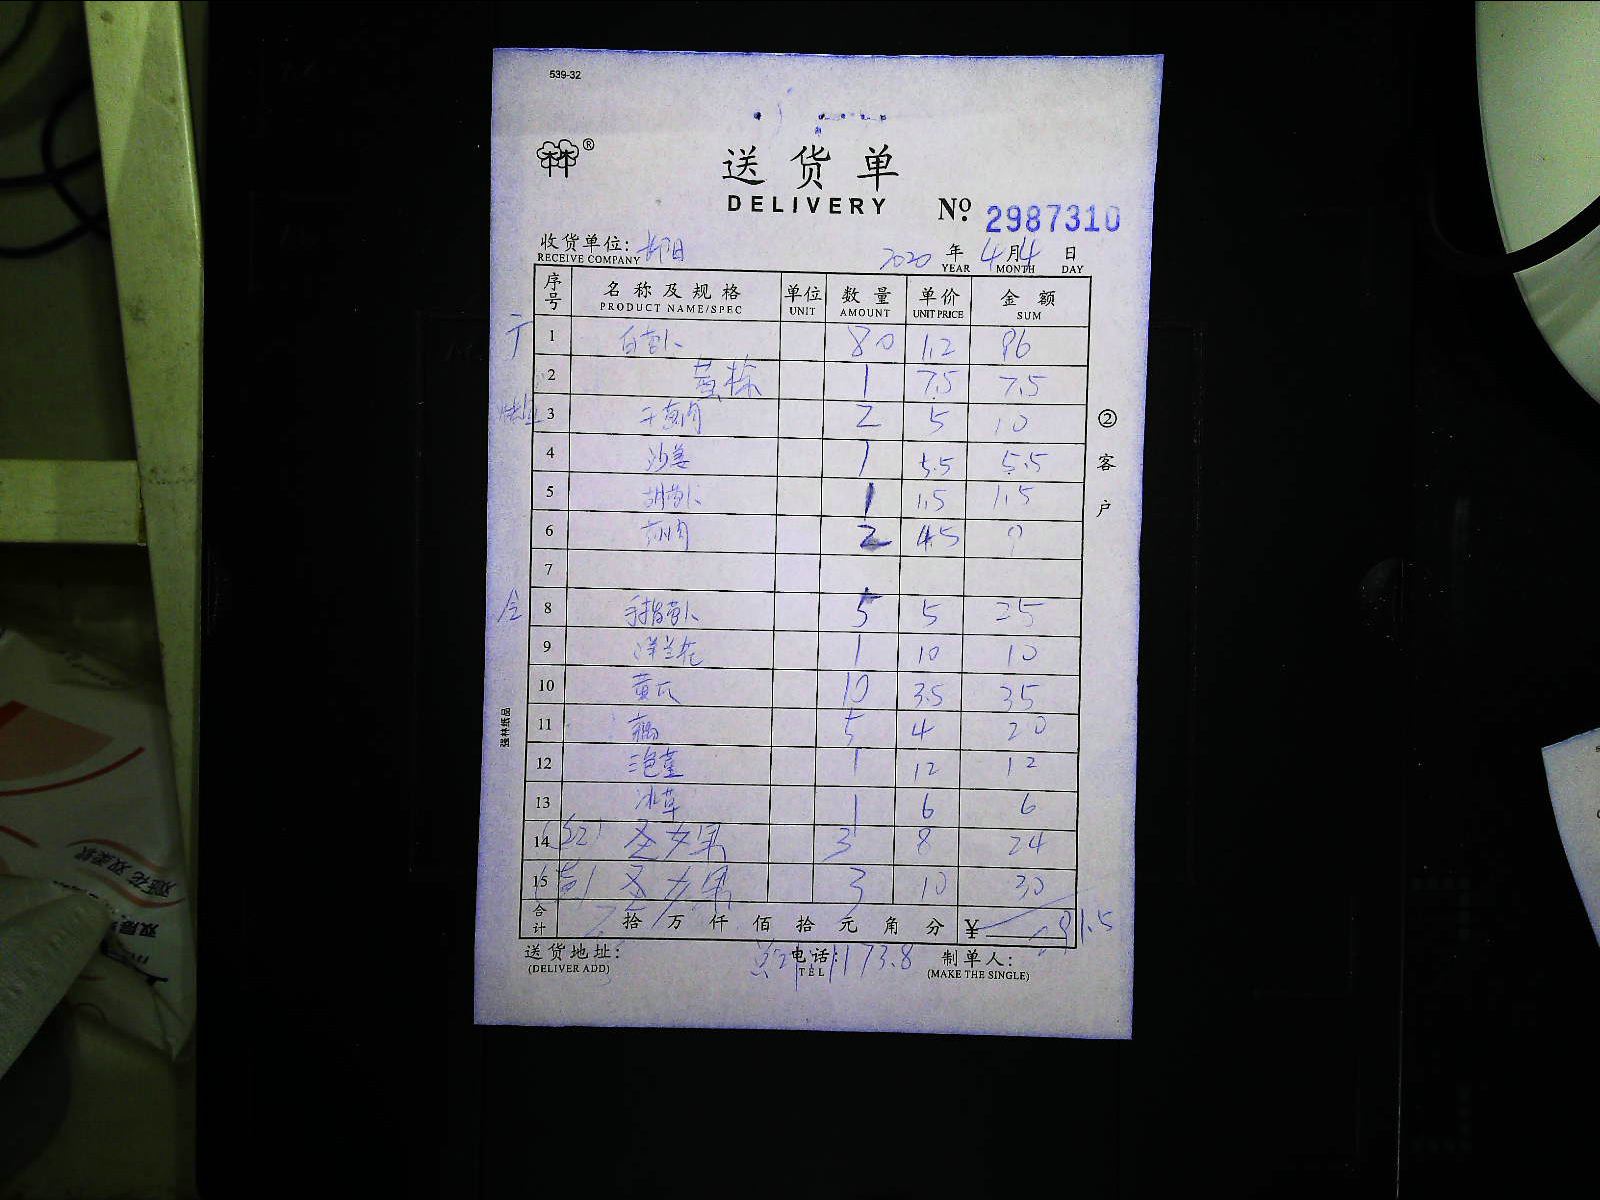 539-32
林®
送货单
DELIVERY
№ 2987310
收货单位:
RECEIVE COMPANY
2020 年 4 月 4 日
YEAR MONTH DAY
序号 名称及规格 单位 数量 单价 金额
PRODUCT NAME/SPEC UNIT AMOUNT UNIT PRICE SUM
1 白萝卜 80 1.2 96
2 1 7.5 7.5
3 干葱肉 2 5 10
4 沙姜 1 5.5 5.5
5 胡萝卜 1 1.5 1.5
6 2 4.5 9
7
8 手指萝卜 5 5 25
9 洋兰花 1 10 10
10 黄瓜 10 3.5 35
11 藕 5 4 20
12 1 12 12
13 冰草 1 6 6
14 (红) 圣女果 3 8 24
15 (黄) 圣女果 3 10 30
合计 拾 万 仟 佰 拾 元 角 分 ¥
送货地址: 电话: 制单人:
(DELIVER ADD) TEL (MAKE THE SINGLE)
1173.8
②客户
强林纸品